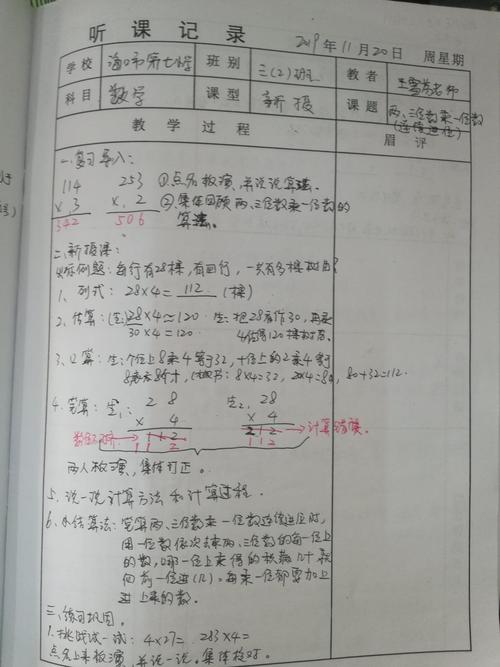 听课记录
2019年11月20日 周星期
学校 海口市第七小学 班别 三(2)班 教者 王雪芳老师
科目 数学 课型 新授 课题 两、三位数乘一位数(连续进位)
教学过程 眉评
一.复习导入:
114 253 ①点名板演,并说说算法。
× 3 × 2 ②集体回顾两、三位数乘一位数的
342 506 算法。
二、新授课:
例题:每行有28棵,有四行,一共有多少棵树苗?
1、列式:28×4=112(棵)
2、估算:(生:)28×4≈120 生:把28看作30,再乘
30×4=120 4估得120棵树苗。
3、口算:生:个位上8乘4等于32,十位上的2乘4等于
8×4=32,20×4=80,80+32=112.
4.笔算:生1: 28 生2: 28
× 4 × 4
112 212 →计算错误。
112 112
两人板演,集体订正。
5.说一说计算方法和计算过程.
6、小结算法:笔算两、三位数乘一位数连续进位时,
用一位数依次去乘两、三位数的每一位上
的数,哪一位上乘得的积满几十就
向前一位进(几)。每乘一位都要加上
进上来的数。
三、练习巩固。
1.挑战试一试:4×27= 283×4=
点名上来板演,并说一说。集体核对。